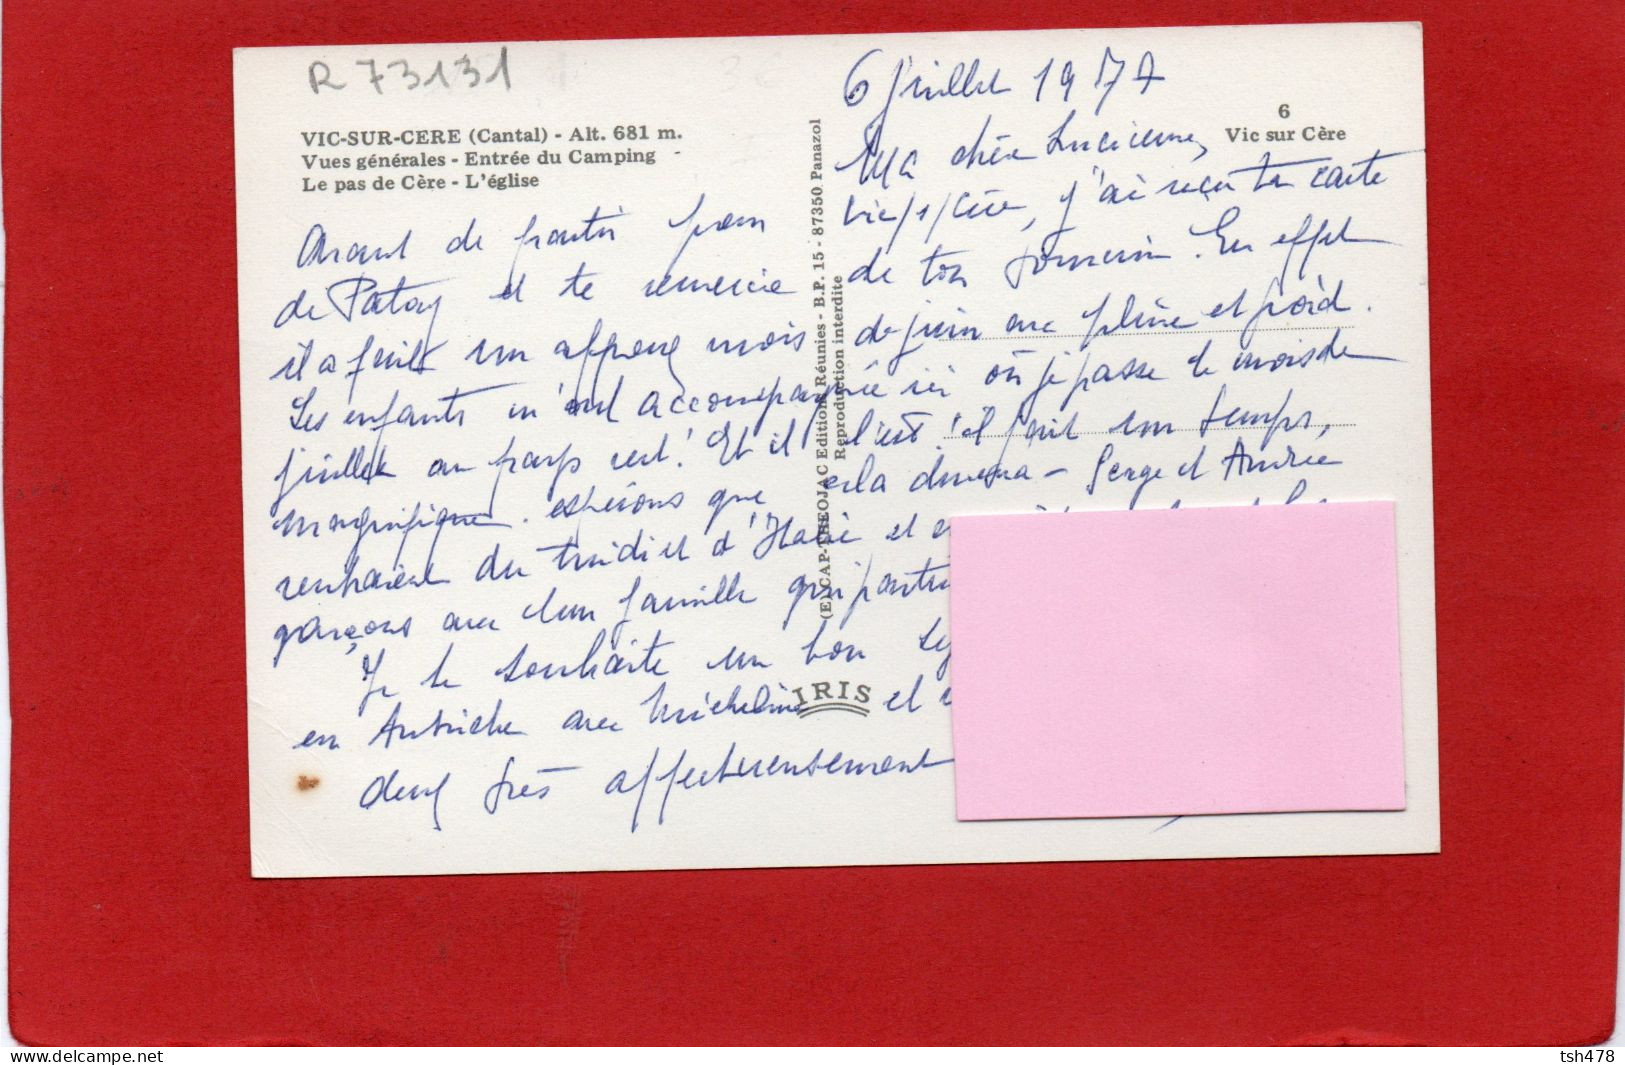 R 73131
VIC-SUR-CERE (Cantal) - Alt. 681 m.
Vues générales - Entrée du Camping
Le pas de Cère - L'église
6
Vic sur Cère
(ELCAP-THEOJAC Editions Réunies - B.P. 15 - 87350 Panazol
Reproduction interdite
IRIS
6 juillet 1977
Ma chère Lucienne,
Avant de partir pour Vic/s/Cère, j'ai reçu ta carte
de Patay et te remercie de ton souvenir. En effet
il a fait un affreux mois de juin avec pluie et froid.
Les enfants m'ont accompagnée ici où je passe le mois de
juillet au pays vert! Et il l'est! il fait un temps,
magnifique. espérons que cela durera - Serge et Andrée
rentraient du midi et d'Italie et
garçons avec leur famille qui
Je te souhaite un bon
en Autriche avec Micheline et
deux très affectueusement
tsh478